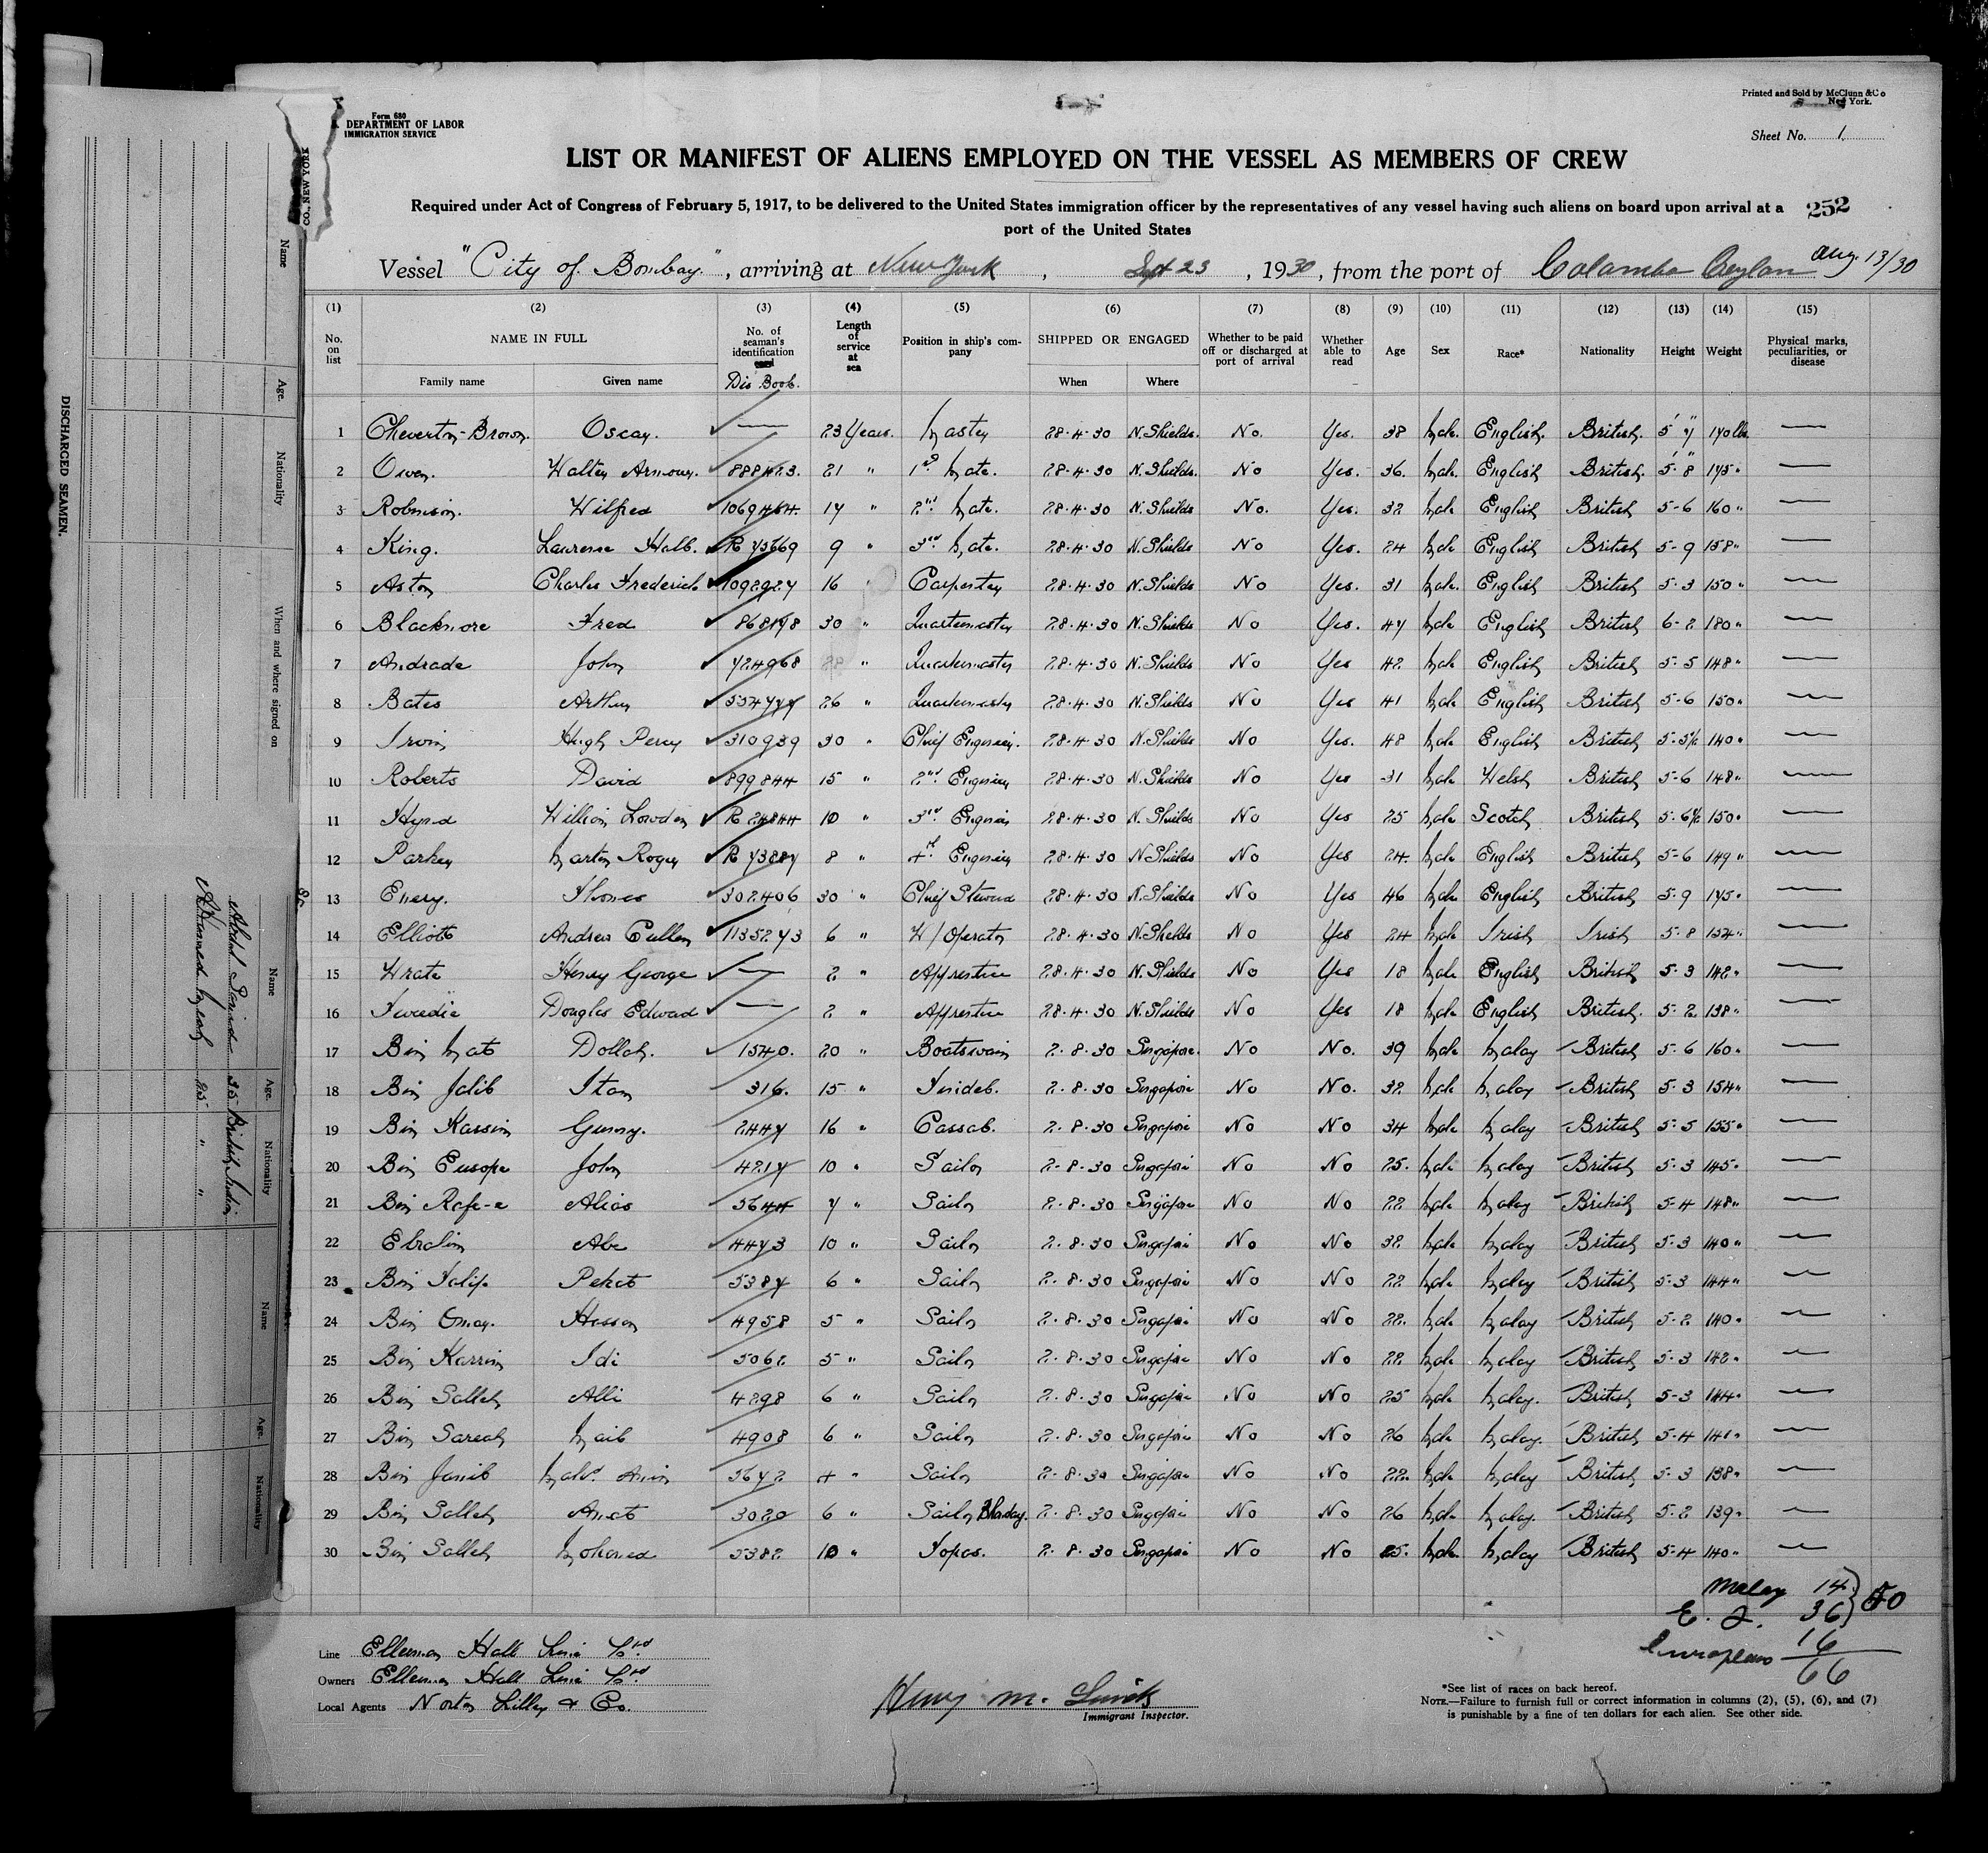 Form 680
DEPARTMENT OF LABOR
IMMIGRATION SERVICE
Printed and Sold by McClunn & Co
New York.
Sheet No. 1
LIST OR MANIFEST OF ALIENS EMPLOYED ON THE VESSEL AS MEMBERS OF CREW
Required under Act of Congress of February 5, 1917, to be delivered to the United States immigration officer by the representatives of any vessel having such aliens on board upon arrival at a
port of the United States
252
Vessel "City of Bombay", arriving at New York, Sept 23, 1930, from the port of Colombo Ceylon Aug. 13/30
(1) (2) (3) (4) (5) (6) (7) (8) (9) (10) (11) (12) (13) (14) (15)
No. on list NAME IN FULL No. of seaman's identification card Length of service at sea Position in ship's company SHIPPED OR ENGAGED Whether to be paid off or discharged at port of arrival Whether able to read Age Sex Race* Nationality Height Weight Physical marks, peculiarities, or disease
Family name Given name Dis Book. When Where
1 Cheverton-Brown. Oscar. — 23 Years. Master 28.4.30 N. Shields. No. Yes. 38 Male. English. British. 5' 7" 170 lbs —
2 Owen. Walter Armour. 888423. 21 " 1st Mate. 28.4.30 N. Shields. No Yes. 36. Male. English British. 5'-8" 175 " —
3 Robinson. Wilfred 1069464. 17 " 2nd Mate. 28.4.30 N. Shields No. Yes. 32 Male English British 5-6 160 " —
4 King. Lawrence Halb. R 73669 9 " 3rd Mate. 28.4.30 N. Shields No Yes. 24 Male English British 5-9 158 " —
5 Aston Charles Frederick 1092927 16 " Carpenter 28.4.30 N. Shields No Yes. 31 Male. English British 5-3 150 " —
6 Blackmore Fred 868178 30 " Quartermaster 28.4.30 N. Shields No Yes. 47 Male English British 6-2 180 " —
7 Andrade John 724968 28 " Quartermaster 28.4.30 N. Shields No Yes 42 Male English British 5-5 148 " —
8 Bates Arthur 534777 26 " Quartermaster 28.4.30 N. Shields No Yes 41 Male English British 5-6 150 " —
9 Irvin Hugh Percy 310939 30 " Chief Engineer. 28.4.30 N. Shields No Yes. 48 Male English British 5-5½ 140 " —
10 Roberts David 899844 15 " 2nd Engineer 28.4.30 N. Shields No Yes 31 Male Welsh British 5-6 148 " —
11 Hynd William Lowden R 24844 10 " 3rd Engineer 28.4.30 N. Shields No Yes 25 Male Scotch British 5-6½ 150 " —
12 Parker Martin Roger R 73887 8 " 4th Engineer 28.4.30 N. Shields No Yes 24. Male English British 5-6 149 " —
13 Emery. Thomas 302406 30 " Chief Steward 28.4.30 N. Shields No Yes 46 Male English British 5-9 175 " —
14 Elliott Andrew Cullen 1135273 6 " W/Operator 28.4.30 N. Shields No Yes 24 Male Irish Irish 5-8 154 " —
15 Wrate Henry George — 2 " Apprentice 28.4.30 N. Shields No Yes 18 Male English British 5-3 142 " —
16 Tweedie Douglas Edward — 2 " Apprentice 28.4.30 N. Shields No Yes 18 Male English British. 5-2 138 " —
17 Bin Mat Dollah. 1540. 20 " Boatswain 2.8.30 Singapore. No No. 39 Male Malay British 5-6 160 " —
18 Bin Jalib Itam 316. 15 " Tindel. 2.8.30 Singapore No No. 32 Male Malay British 5-3 154 " —
19 Bin Kassim Gunny. 2447 16 " Cassab. 2.8.30 Singapore No No 34 Male Malay British 5-5 155 " —
20 Bin Eusope John 4217 10 " Sailor 2.8.30 Singapore No No 25. Male Malay British 5-3 145 " —
21 Bin Rafe-e Alias 5644 7 " Sailor 2.8.30 Singapore No No 22 Male Malay British 5-4 148 " —
22 Ebrahim Abe 4473 10 " Sailor 2.8.30 Singapore No No 32 Male Malay British 5-3 140 " —
23 Bin Talip Pehat 5387 6 " Sailor 2.8.30 Singapore No No 22 Male Malay British 5-3 144 " —
24 Bin Omar. Hassan 4958 5 " Sailor 2.8.30 Singapore No No 22. Male Malay British 5-2 140 " —
25 Bin Karrim Idi 5062 5 " Sailor 2.8.30 Singapore No No 22 Male Malay British 5-3 142 " —
26 Bin Salleh Alli 4298 6 " Sailor 2.8.30 Singapore No No 25 Male Malay. British 5-3 144 " —
27 Bin Sareah Maib 4908 6 " Sailor 2.8.30 Singapore No No 26 Male Malay. British 5-4 141 " —
28 Bin Janib Mahd. Amin 5672 4 " Sailor 2.8.30 Singapore No No 22. Male Malay British 5-3 138 " —
29 Bin Salleh Amat 3020 6 " Sailor Bhandary. 2.8.30 Singapore No No 26 Male Malay. British 5-2 139 " —
30 Bin Salleh Mohamed 5382 10 " Topas. 2.8.30 Singapore No No 25. Male Malay British 5-4 140 " —
Malay 14
E. I. 36 } 50
Europeans 16
66
Line Ellerman Hall Line Ltd.
Owners Ellerman Hall Line Ltd.
Local Agents Norton Lilley & Co.
Henry M.
Immigrant Inspector.
*See list of races on back hereof.
NOTE.—Failure to furnish full or correct information in columns (2), (5), (6), and (7)
is punishable by a fine of ten dollars for each alien. See other side.
CO., NEW YORK
DISCHARGED SEAMEN.
Name Age. Nationality When and where signed on
Name Age. Nationality
Abdul 35 British Indian
25 " "
Name Age. Nationality